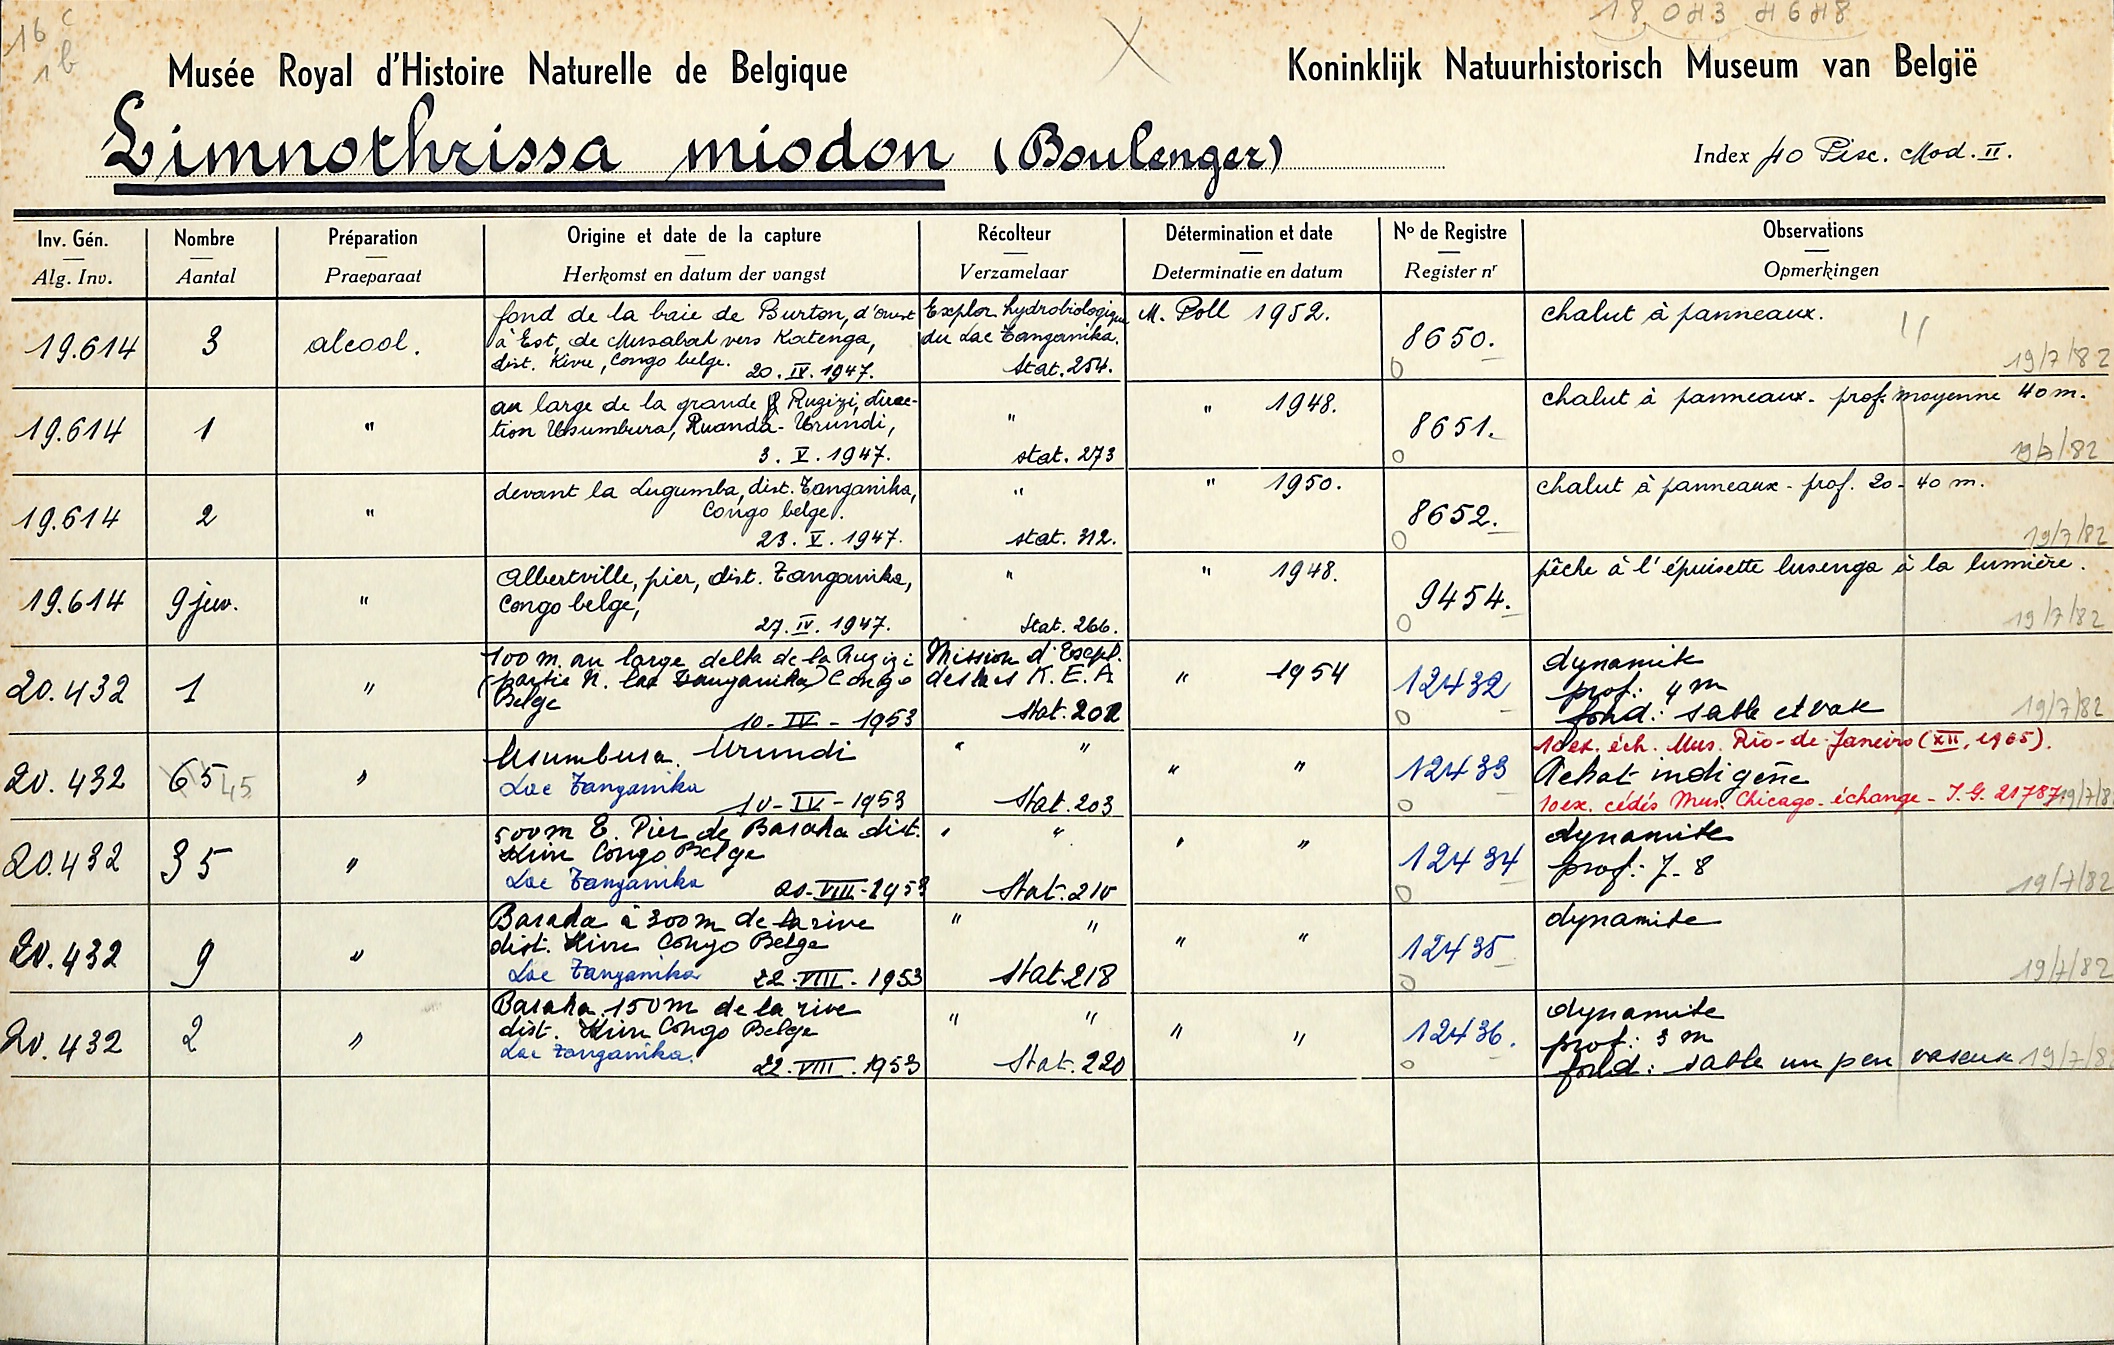 16 c
1 b
18 043 4648
X
Musée Royal d'Histoire Naturelle de Belgique
Koninklijk Natuurhistorisch Museum van België
Limnothrissa miodon (Boulenger)
Index 40 Pisc. Mod. II.
Inv. Gén. Nombre Préparation Origine et date de la capture Récolteur Détermination et date No de Registre Observations
Alg. Inv. Aantal Praeparaat Herkomst en datum der vangst Verzamelaar Determinatie en datum Register nr Opmerkingen
19.614 3 alcool.
fond de la baie de Burton, d'ouest
à Est, de Mursabah vers Katenga,
dist. Kivu, Congo belge. 20.IV.1947.
Explor. hydrobiologique
du Lac Tanganika.
Stat. 254.
M. Poll 1952.
8650.
chalut à panneaux.
19/7/82
19.614 1 "
au large de la grande Ruzizi, direc-
tion Usumbura, Ruanda-Urundi,
3.V.1947.
"
stat. 273
" 1948.
8651.
chalut à panneaux. prof. moyenne 40 m.
19/7/82
19.614 2 "
devant la Lugumba, dist. Tanganika,
Congo belge.
23.V.1947.
"
stat. 312.
" 1950.
8652.
chalut à panneaux - prof. 20 - 40 m.
19/7/82
19.614 9 juv. "
Albertville, pier, dist. Tanganika,
Congo belge,
27.IV.1947.
"
Stat. 266.
" 1948.
9454.
pêche à l'épuisette lusenga à la lumière.
19/7/82
20.432 1 "
100 m. au large delta de la Ruzizi
(partie N. lac Tanganika) Congo
Belge
10-IV-1953
Mission d'Expl.
des lacs K.E.A
Stat. 202
" 1954
12432
dynamite
prof: 4 m
fond: sable et vase
19/7/82
20.432 65 45 "
Usumbura. Urundi
Lac Tanganika
10-IV-1953
" "
Stat. 203
" "
12433
10 ex. éch. Mus. Rio-de-Janeiro (XII, 1965).
Achat indigène
10 ex. cédés Mus. Chicago - échange - I.G. 21787
19/7/8
20.432 35 "
500 m E. Pier de Baraka dist.
Kivu Congo Belge
Lac Tanganika 20-VIII-1953
" "
Stat. 210
" "
12434
dynamite
prof: 7-8
19/7/82
20.432 9 "
Baraka à 300 m de la rive
dist. Kivu Congo Belge
Lac Tanganika 22-VIII-1953
" "
Stat. 218
" "
12435
dynamite
19/7/82
20.432 2 "
Baraka 150 m de la rive
dist. Kivu Congo Belge
Lac Tanganika. 22-VIII.1953
" "
Stat. 220
" "
12436.
dynamite
prof: 3 m
fond: sable un peu vaseux
19/7/8